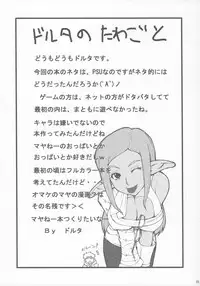 ドルタの たわごと
どうもどうもドルタです。
今回の本のネタは、PSUなのですがネタ的には
どうだったんだろうか(´Д`)ノ
ゲームの方は、ネットの方がドタバタしてて
最初の内は、まともに遊べなかったね。
キャラは嫌いでないので
本作ってみたんだけどね
マヤねーのおっぱいとか
おっぱいとか好きだしw
最初の頃はフルカラー本を
考えてたんだけど・・・
オマケのマヤの漫画が
その名残です><
マヤねー本つくりたいなー
By ドルタ